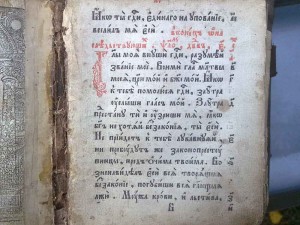 ꙗ҆́кѡ ты̀ гдⷭ҇и, є҆ди́наго на ᲂу҆пова́нїе,
всели́лъ мѧ̀ є҆сѝ.
Гл҃ы моѧ̀ внꙋшѝ гдⷭ҇и, разꙋмѣ́й
зва́нїе моѐ. Вонмѝ гла́сꙋ мл҃твы
моеѧ̀, цр҃ю мо́й и҆ бж҃е мо́й. ꙗ҆́кѡ
к тебѣ̀ помолю́сѧ гдⷭ҇и, заꙋ́тра
ᲂу҆слы́ши гла́съ мо́й. Заꙋ́тра
предста́нꙋ тѝ и҆ ᲂу҆́зриши мѧ̀, ꙗ҆́кѡ
бг҃ъ не хотѧ́й беззако́нїѧ, ты̀ є҆сѝ.
Не прїи́детъ к тебѣ̀ лꙋка́внꙋѧй,
ни пребꙋ́дꙋтъ же законопрестꙋ́
пницы, пред̾ ѻ҆чи́ма твои́ма. Во
зненави́дѣлъ є҆сѝ всѧ̀ творѧ́щаѧ
беззако́нїе, погꙋби́ши всѧ̀ гл҃ющаѧ
лжꙋ̀. Мꙋ́жа кро́ви, и҆ льсти́ва,